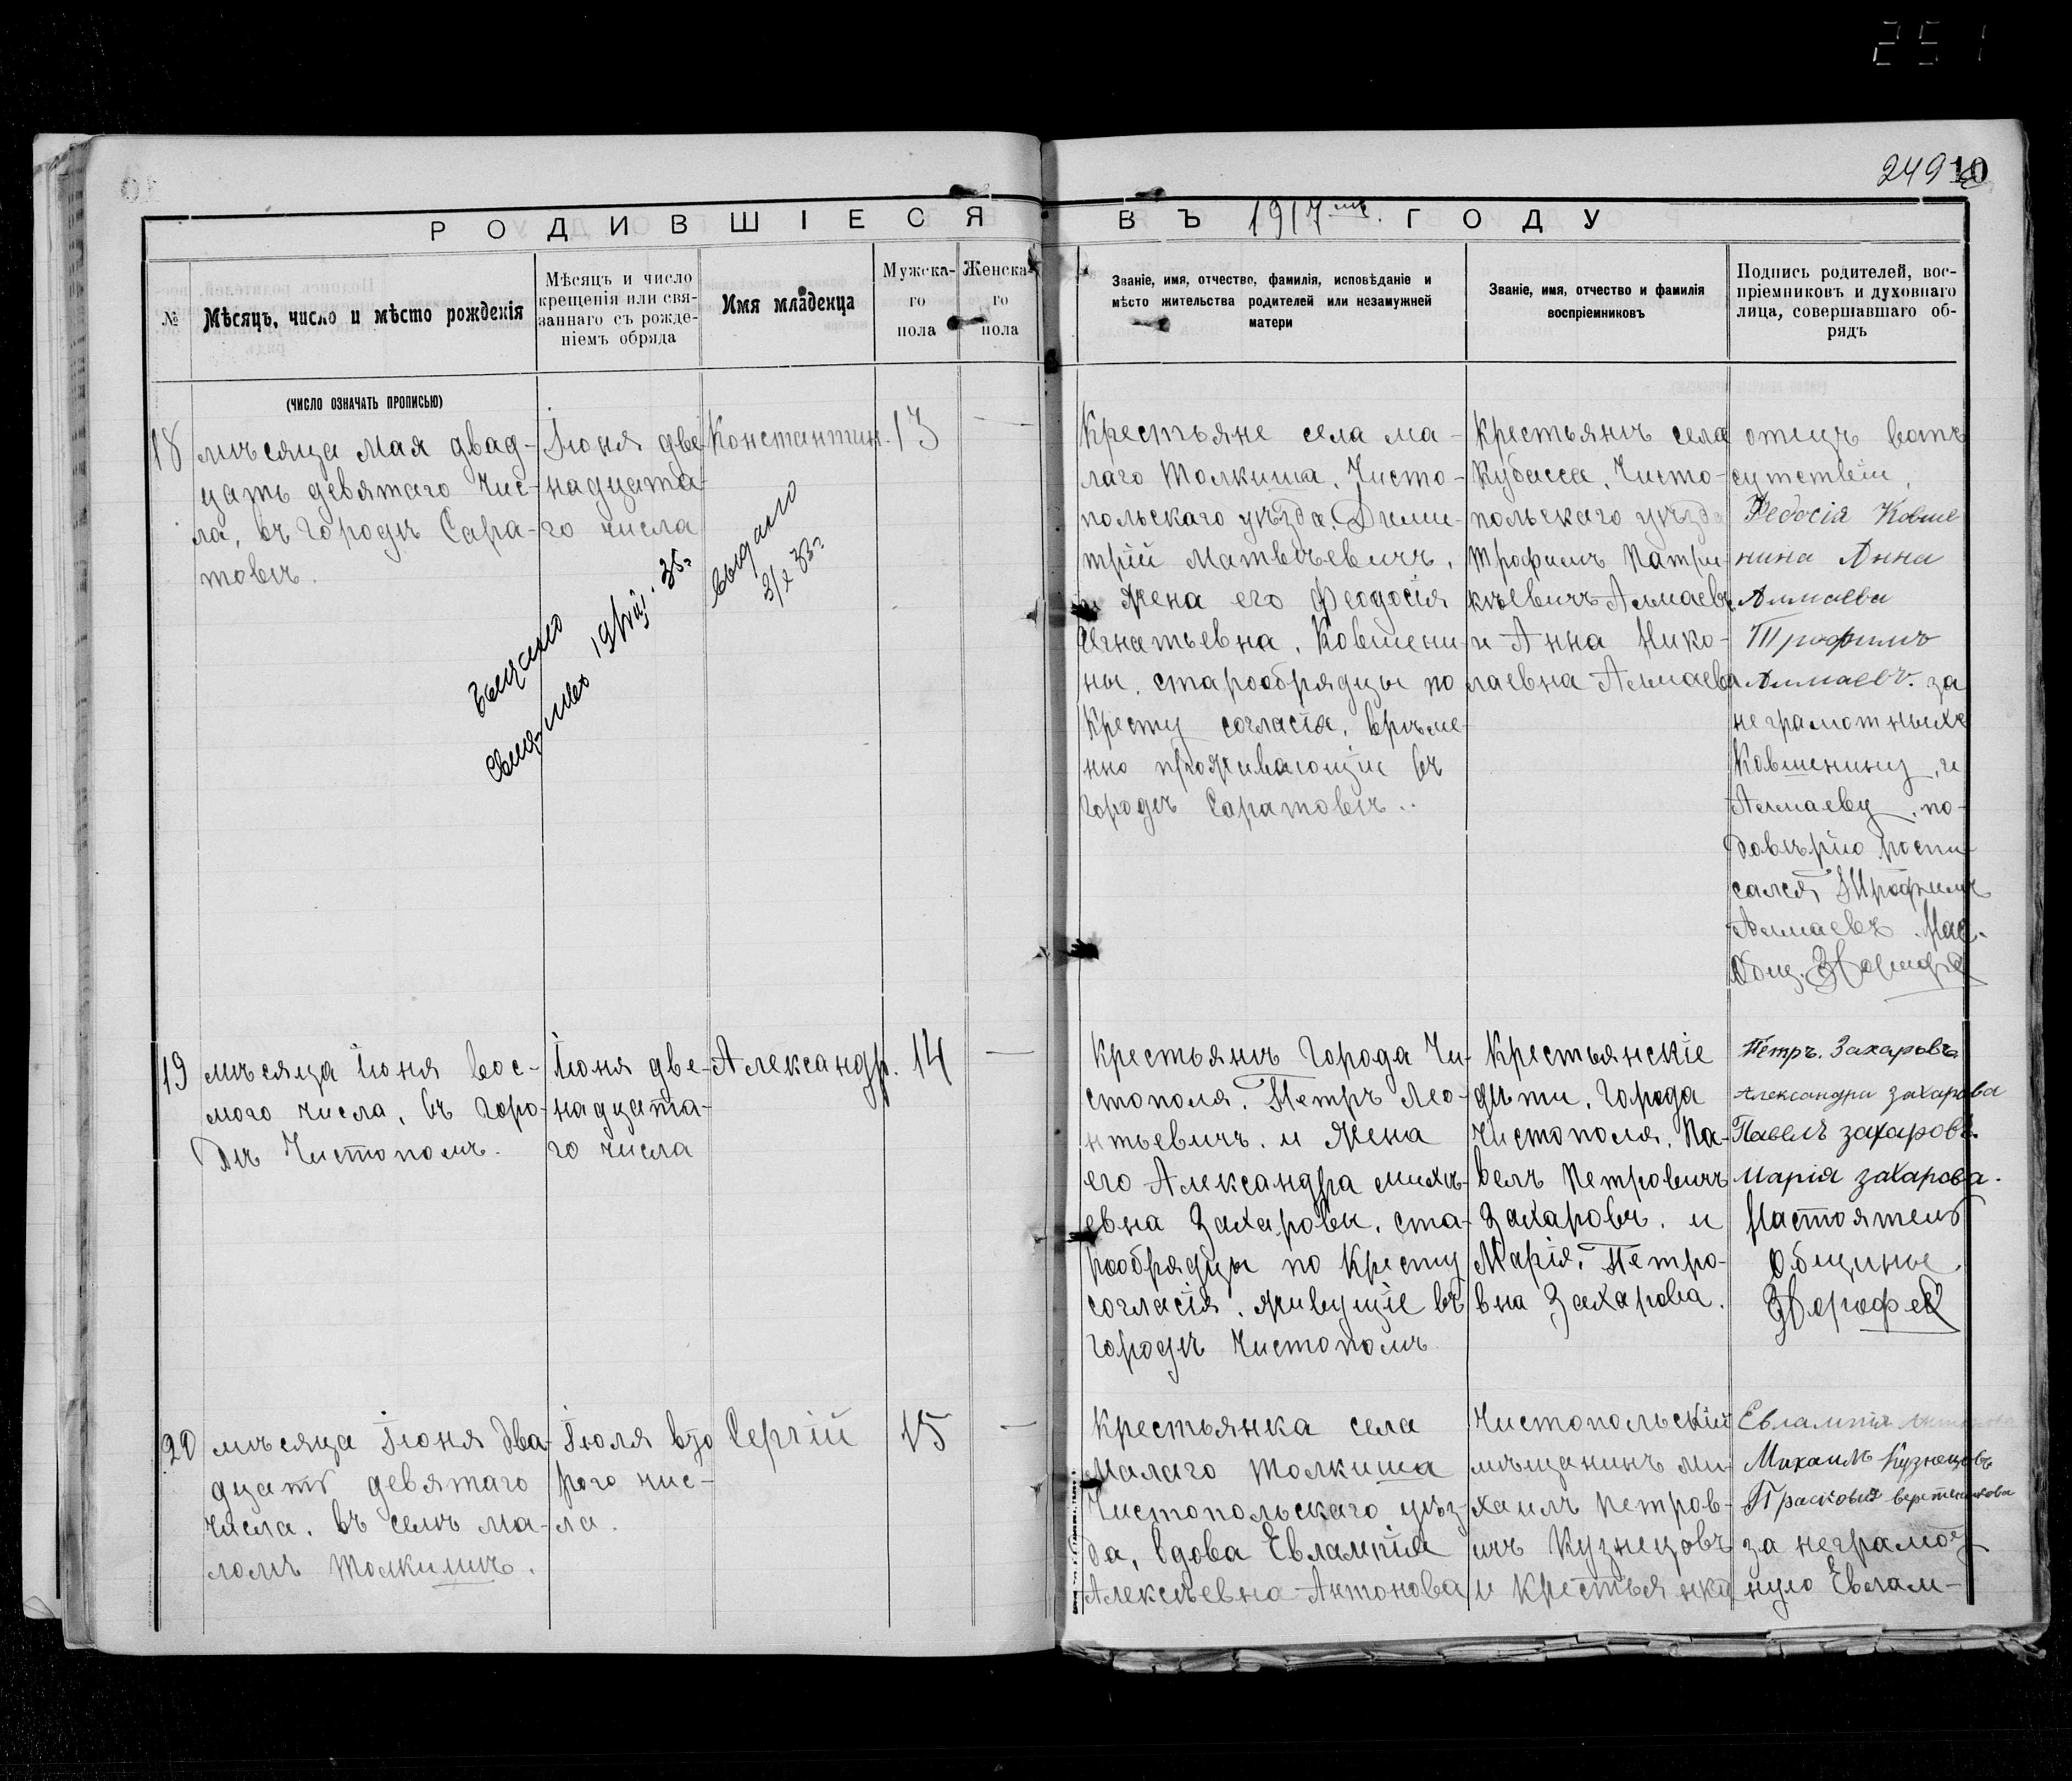 251
249
10
РОДИВШІЕСЯ ВЪ 1917 мъ. ГОДУ
№
Мѣсяцъ, число и мѣсто рожденія
Мѣсяцъ и число
крещенія или свя-
заннаго съ рожде-
ніемъ обряда
Имя младенца
Мужска-
го
пола
Женска-
го
пола
Званіе, имя, отчество, фамилія, исповѣданіе и
мѣсто жительства родителей или незамужней
матери
Званіе, имя, отчество и фамилія
воспріемниковъ
Подпись родителей, вос-
пріемниковъ и духовнаго
лица, совершавшаго об-
рядъ
(ЧИСЛО ОЗНАЧАТЬ ПРОПИСЬЮ)
18
мѣсяца мая двад-
цать девятаго чис-
ла, въ городѣ Сара-
товѣ.
Іюня две
надцата-
го числа
Константин.
13
—
выдано
3/2 33г
выдано
35г
Крестьяне села ма-
лаго Толкиша, Чисто-
польскаго уѣзда. Дими-
трій Матвѣевичъ,
и жена его Феодосія
Игнатьевна, Ковшени-
ны, старообрядцы по
Кресту согласія, врѣме-
нно проживающіе въ
городѣ Саратовѣ..
Крестьянъ села
Кубасса, Чисто-
польскаго уѣзда
Трофимъ Патри-
кѣевичъ Алмаевъ
и Анна Нико-
лаевна Алмаева
отецъ вотъ
сутствіи,
Федосія Ковше
нина Анна
Алмаева
Трофимъ
Алмаевъ. за
неграмотныхъ
Ковшенину, и
Алмаеву, по-
довѣрію роспи-
сался Трофимъ
Алмаевъ. Нас.
Общ.
19
мѣсяца Іюня вос-
мого числа, въ горо-
дѣ Чистополѣ.
Іюня две-
надцата-
го числа
Александр.
14
—
Крестьянъ города Чи-
стополя, Петръ Лео-
нтьевичъ и жена
его Александра михѣ-
евна Захаровы, ста-
рообрядцы по Кресту
согласія, живущіе въ
городѣ Чистополѣ
Крестьянскіе
дѣти, города
Чистополя, Па-
велъ Петровичъ
Захаровъ, и
Марія, Петро-
вна Захарова.
Петръ. Захаровъ
Александра захарова
Павелъ захаровъ.
Марія захарова.
Настоятель
Общины.
20
мѣсяца Іюня два-
дцать девятаго
числа, въ селѣ ма-
ломъ Толкишѣ.
Іюля вто
рого чис-
ла.
Сергій
15
—
Крестьянка села
Малаго Толкиша
Чистопольскаго уѣз-
да, вдова Евлампія
Алексѣевна Антонова
Чистопольскій
мѣщанинъ ми-
хаилъ Петров-
ичъ Кузнецовъ
и Крестьянка
Евлампія Антонова
Михаилъ Кузнецовъ
Прасковья веретенникова
за неграмот
ную Евлам-